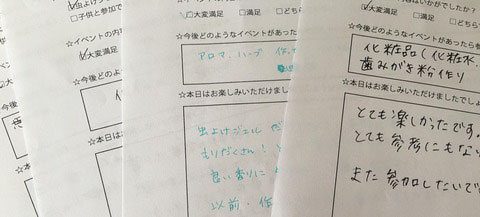 虫よけジ
□子供と参加で
☆イベントの内
大変満足
☆今後
☆
□大変満足 □満足 □どちら
☆今後どのようなイベントがあったら
アロマ、ハーブ 作
☆本日はお楽しみいただけましたで
虫よけジェル だ
もりだくさん!
良い香りに
以前、作
はいかがでしたか?
□大変満足 □満足 □どち
☆今後どのようなイベントがあったら参
化粧品(化粧水、
歯みがき粉作り
☆本日はお楽しみいただけましたでしょ
とても楽しかったです。
とても参考にもな
また参加したいで